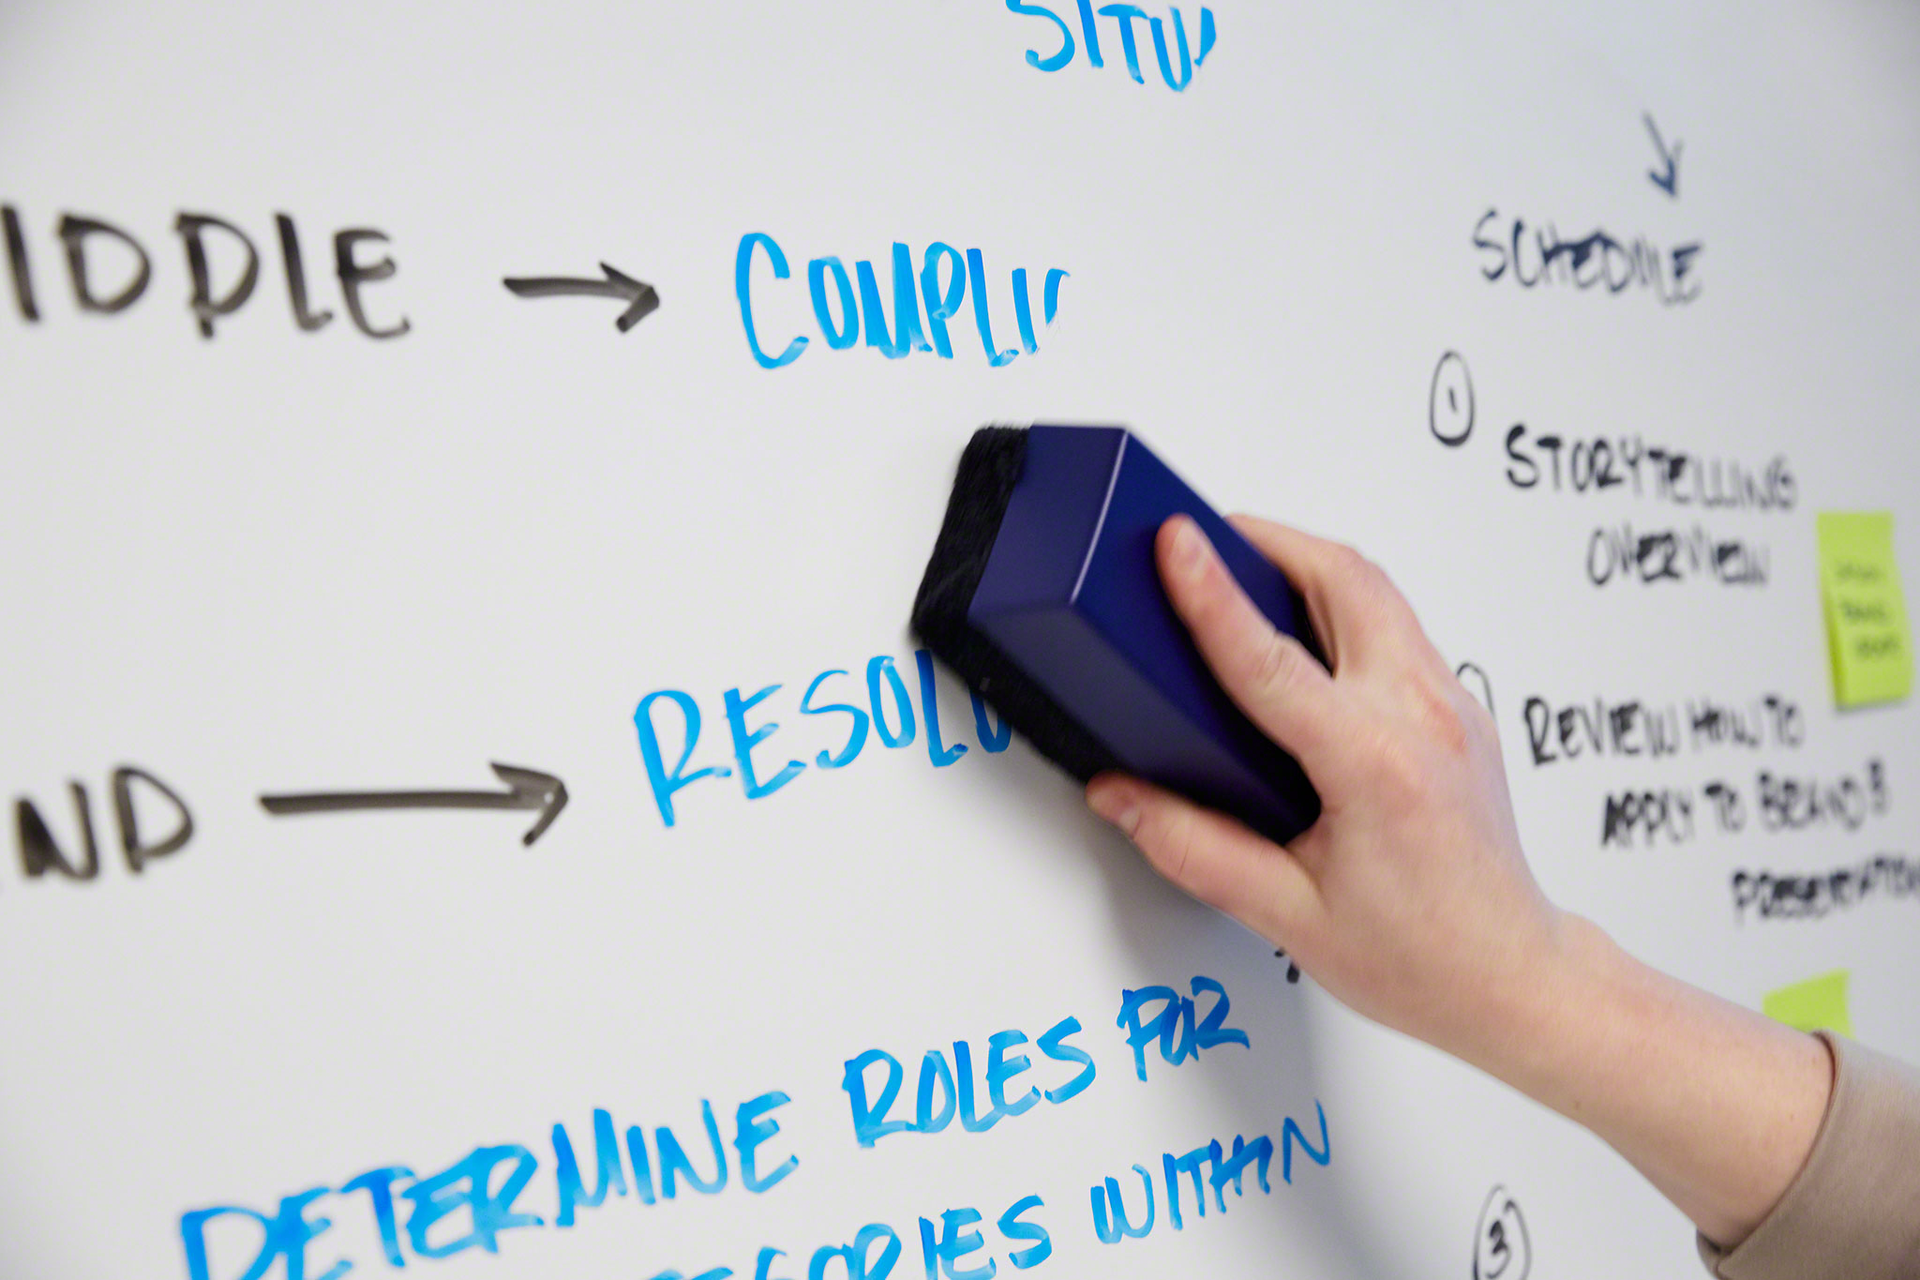 SITU
IDDLE → COMPLI
ND → RESOLU
DETERMINE ROLES FOR
ORIES WITHIN
SCHEDULE
1
STORYTELLING
OVERVIEW
REVIEW HOW TO
APPLY TO BRANDS
PRESENTATION
3